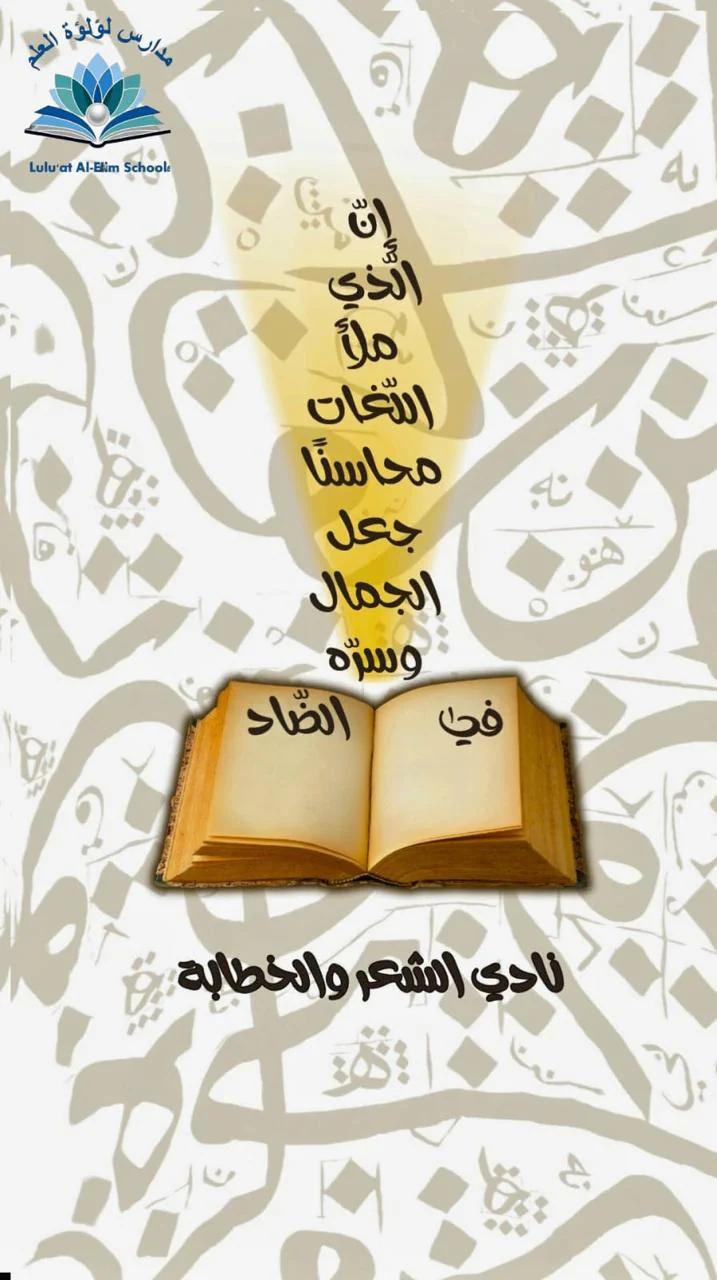 مدارس لؤلؤة العلم
Lulu'at Al-Elim Schools
إنّ
الَّذي
ملأ
اللّغات
محاسنًا
جعل
الجمال
وسرّه
في الضّاد
نادي الشعر والخطابة